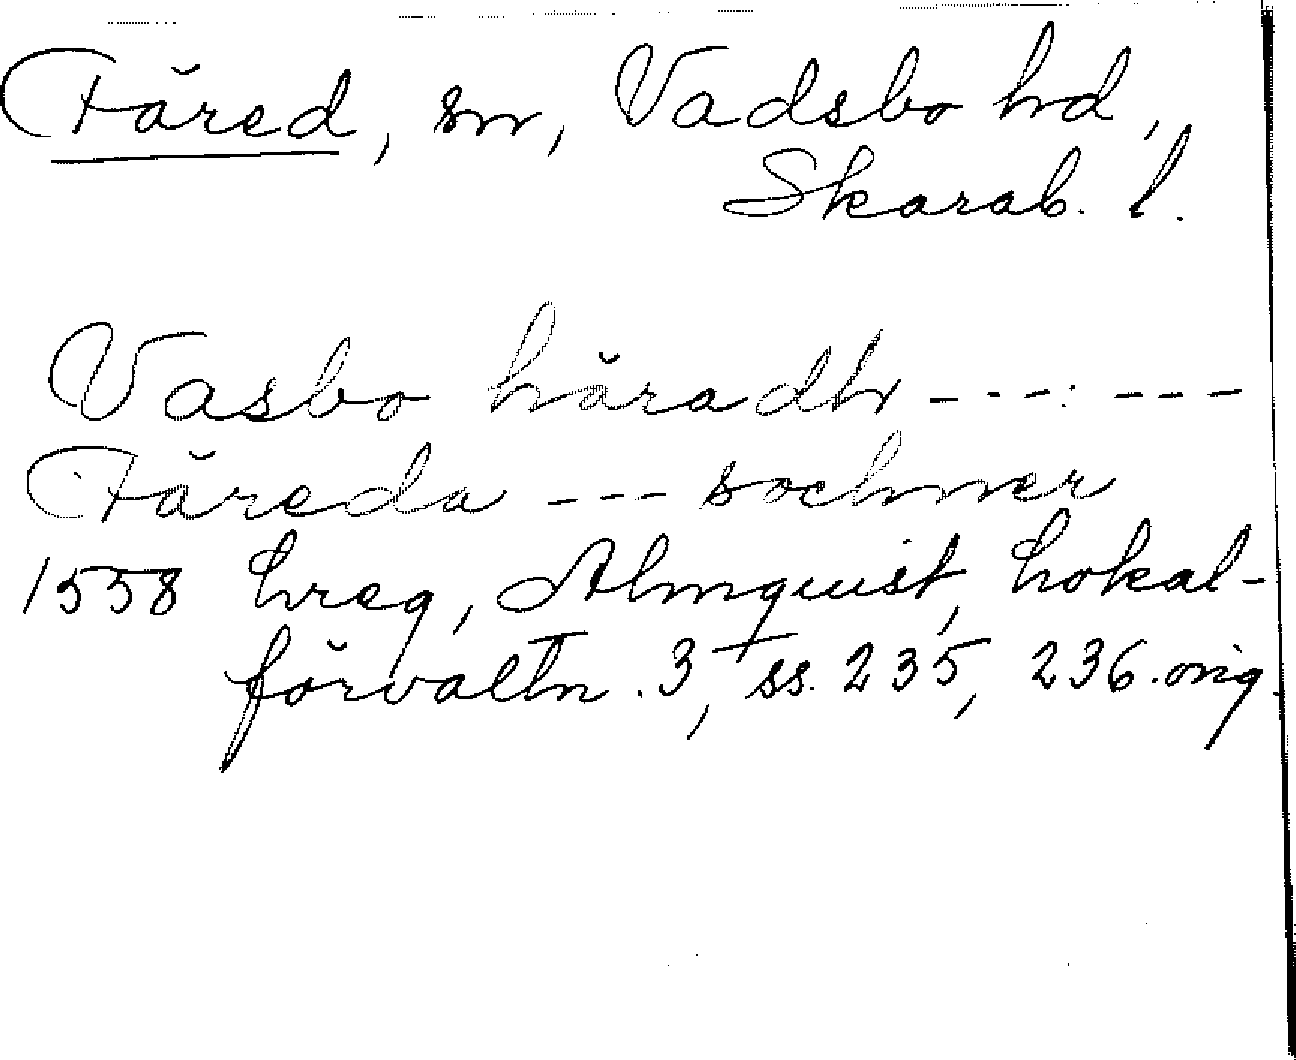 Färed, sn, Vadsbo hd,
Skarab. l.
Vasbo häradh ---:---
Färeda --- sochner
1558 hreg, Almquist, Lokal-
förvaltn. 3, ss. 235, 236. orig.